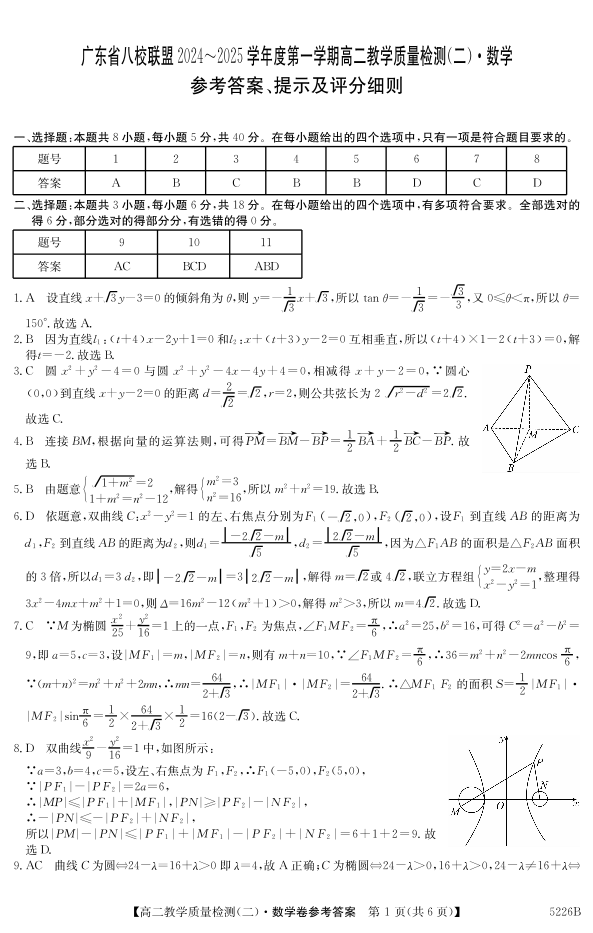 广东省八校联盟 2024～2025 学年度第一学期高二教学质量检测(二)·数学
参考答案、提示及评分细则
一、选择题:本题共 8 小题,每小题 5 分,共 40 分。在每小题给出的四个选项中,只有一项是符合题目要求的。
题号 1 2 3 4 5 6 7 8
答案 A B C B B D C D
二、选择题:本题共 3 小题,每小题 6 分,共 18 分。在每小题给出的四个选项中,有多项符合要求。全部选对的
得 6 分,部分选对的得部分分,有选错的得 0 分。
题号 9 10 11
答案 AC BCD ABD
1. A 设直线 x+√3y-3=0 的倾斜角为 θ,则 y=-1/√3 x+√3,所以 tan θ=-1/√3=-√3/3,又 0≤θ<π,所以 θ=
150°.故选 A.
2. B 因为直线l₁:(t+4)x-2y+1=0 和l₂:x+(t+3)y-2=0 互相垂直,所以(t+4)×1-2(t+3)=0,解
得t=-2.故选 B.
3. C 圆 x²+y²-4=0 与圆 x²+y²-4x-4y+4=0,相减得 x+y-2=0,∵圆心
(0,0)到直线 x+y-2=0 的距离 d=2/√2=√2,r=2,则公共弦长为 2√(r²-d²)=2√2.
故选 C.
4. B 连接 BM,根据向量的运算法则,可得PM→=BM→-BP→=1/2 BA→+1/2 BC→-BP→.故
选 B.
5. B 由题意{√(1+m²)=2 1+m²=n²-12,解得{m²=3 n²=16,所以 m²+n²=19.故选 B.
6. D 依题意,双曲线 C:x²-y²=1 的左、右焦点分别为F₁(-√2,0),F₂(√2,0),设F₁ 到直线 AB 的距离为
d₁,F₂ 到直线 AB 的距离为d₂,则d₁=|-2√2-m|/√5,d₂=|2√2-m|/√5,因为△F₁AB 的面积是△F₂AB 面积
的 3 倍,所以d₁=3d₂,即|-2√2-m|=3|2√2-m|,解得 m=√2或 4√2,联立方程组{y=2x-m x²-y²=1,整理得
3x²-4mx+m²+1=0,则 Δ=16m²-12(m²+1)>0,解得 m²>3,所以 m=4√2.故选 D.
7. C ∵M 为椭圆 x²/25+y²/16=1 上的一点,F₁,F₂ 为焦点,∠F₁MF₂=π/6,∴a²=25,b²=16,可得 C²=a²-b²=
9,即 a=5,c=3,设|MF₁|=m,|MF₂|=n,则有 m+n=10,∵∠F₁MF₂=π/6,∴36=m²+n²-2mncos π/6,
∵(m+n)²=m²+n²+2mn,∴mn=64/(2+√3),∴|MF₁|·|MF₂|=64/(2+√3).∴△MF₁F₂ 的面积 S=1/2|MF₁|·
|MF₂|sin π/6=1/2×64/(2+√3)×1/2=16(2-√3).故选 C.
8. D 双曲线x²/9-y²/16=1 中,如图所示:
∵a=3,b=4,c=5,设左、右焦点为 F₁,F₂,∴F₁(-5,0),F₂(5,0),
∵|PF₁|-|PF₂|=2a=6,
∴|MP|≤|PF₁|+|MF₁|,|PN|≥|PF₂|-|NF₂|,
∴-|PN|≤-|PF₂|+|NF₂|,
所以|PM|-|PN|≤|PF₁|+|MF₁|-|PF₂|+|NF₂|=6+1+2=9.故
选 D.
9. AC 曲线 C 为圆⇔24-λ=16+λ>0 即 λ=4,故 A 正确;C 为椭圆⇔24-λ>0,16+λ>0,24-λ≠16+λ⇔
P
A
M
C
B
y
P
N
M
O
x
【高二教学质量检测(二)·数学卷参考答案 第 1 页(共 6 页)】 5226B